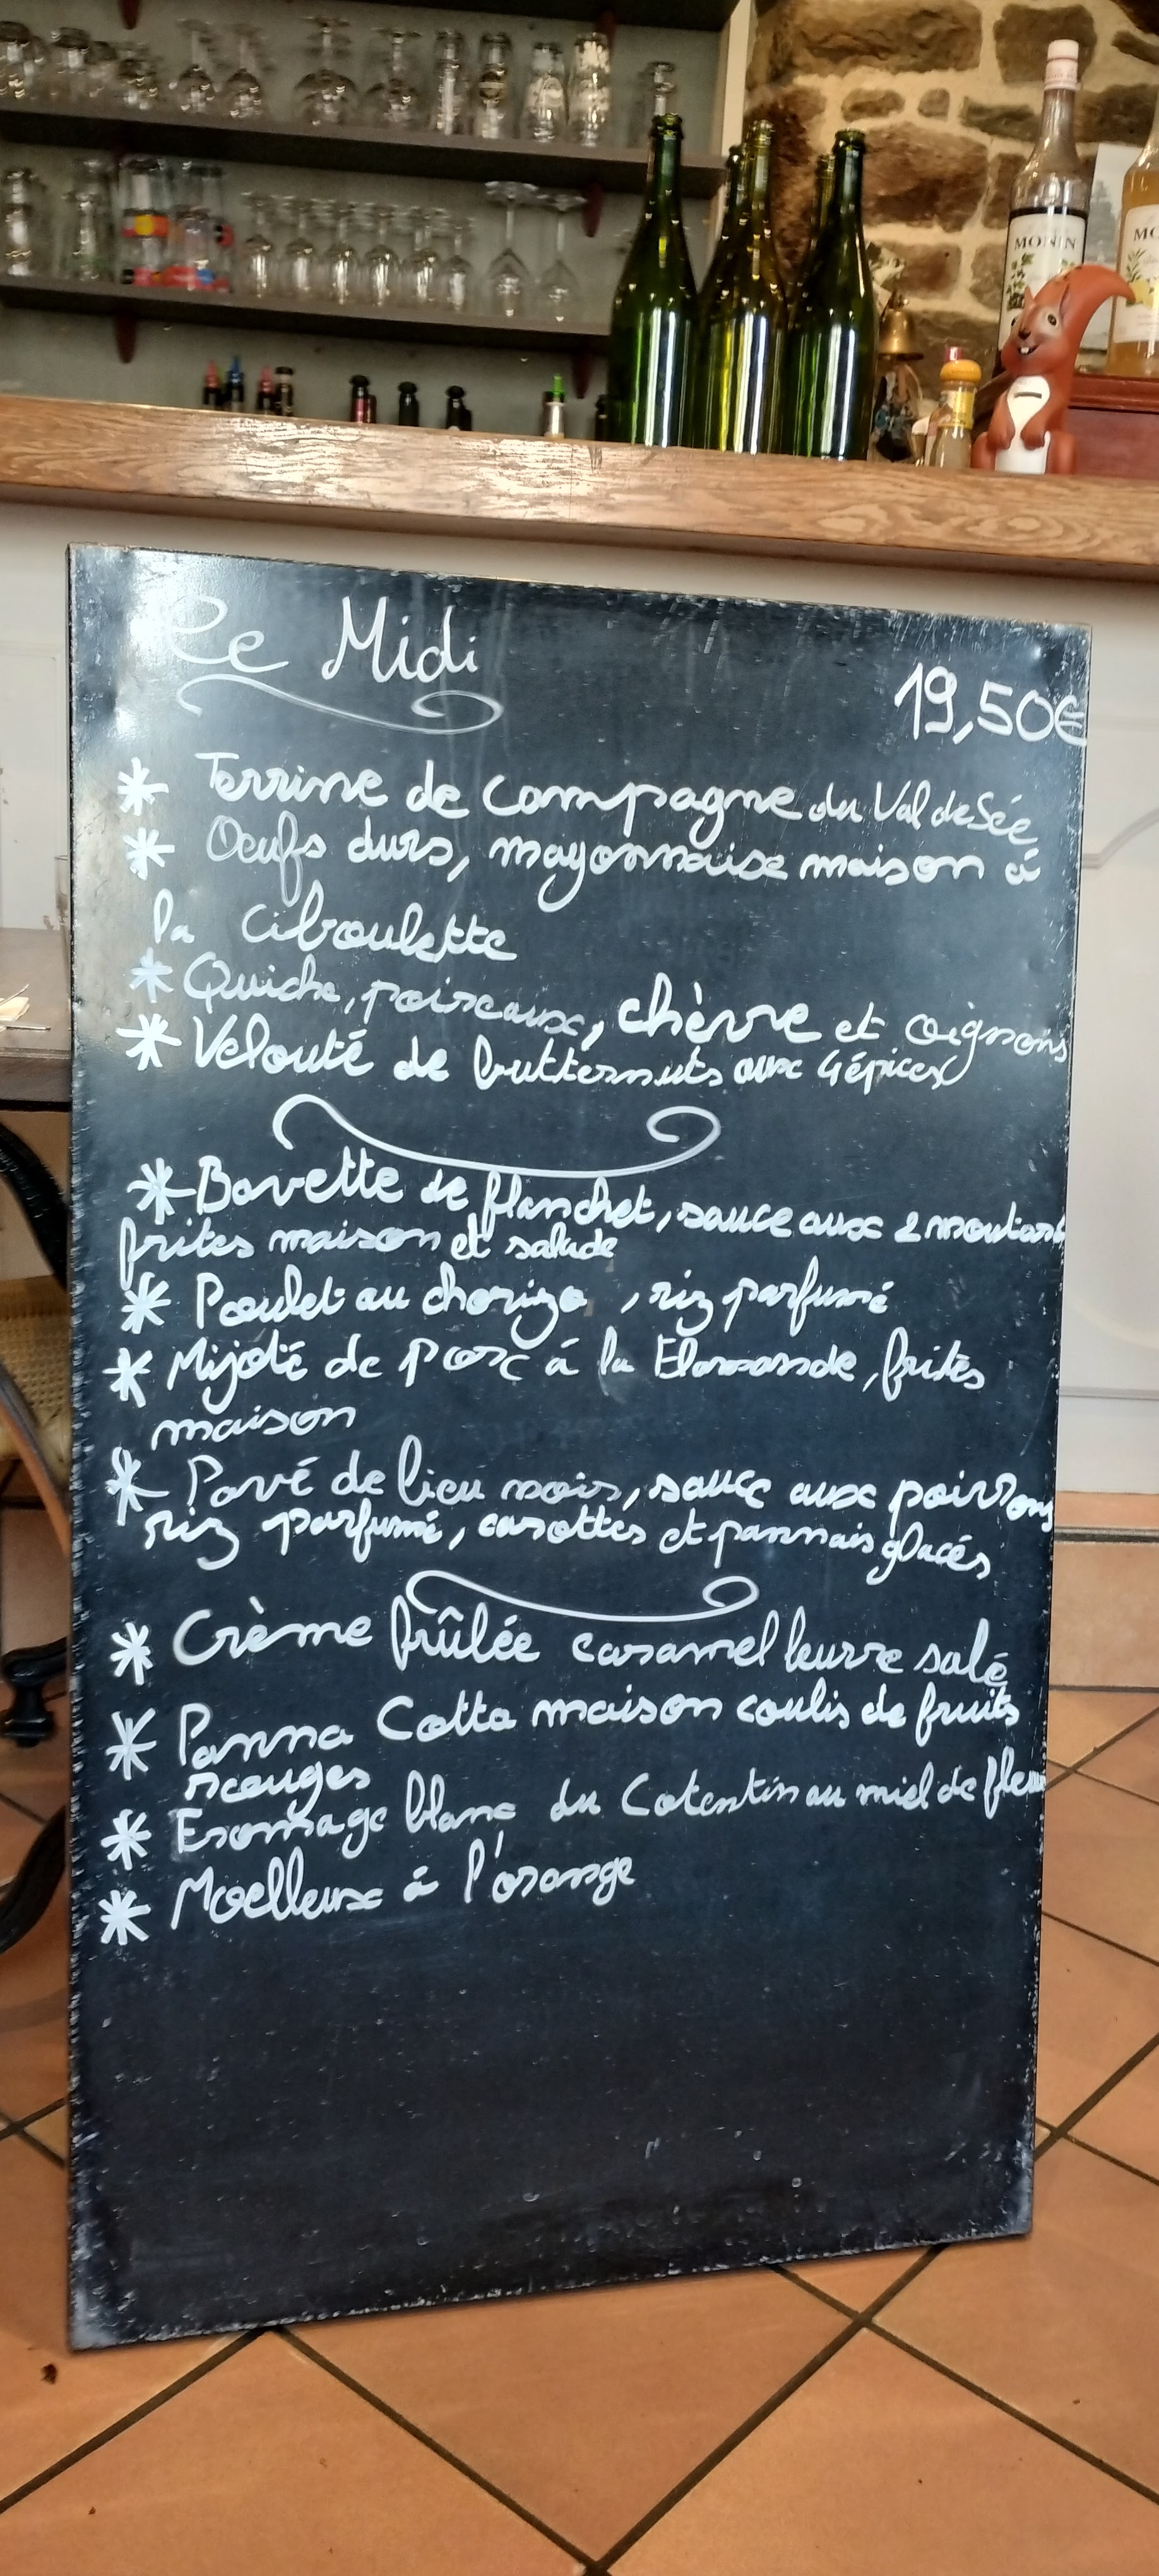 MONIN
MO
Le Midi
19,50€
* Terrine de Compagne du Val de Sée
* Oeufs durs, mayonnaise maison à
la Ciboulette
* Quiche, poireaux, chèvre et oignons
* Velouté de butternuts aux 4 épices
* Bavette de flanchet, sauce aux 2 moutard
frites maison et salade
* Poulet au chorizo, riz parfumé
* Mijoté de porc à la Flamande, frites
maison
* Pavé de lieu noir, sauce aux poivrons
riz parfumé, carottes et pannais glacés
* Crème brûlée caramel beurre salé
* Panna Cotta maison coulis de fruits
rouges
* Fromage blanc du Cotentin au miel de fleurs
* Moelleux à l'orange